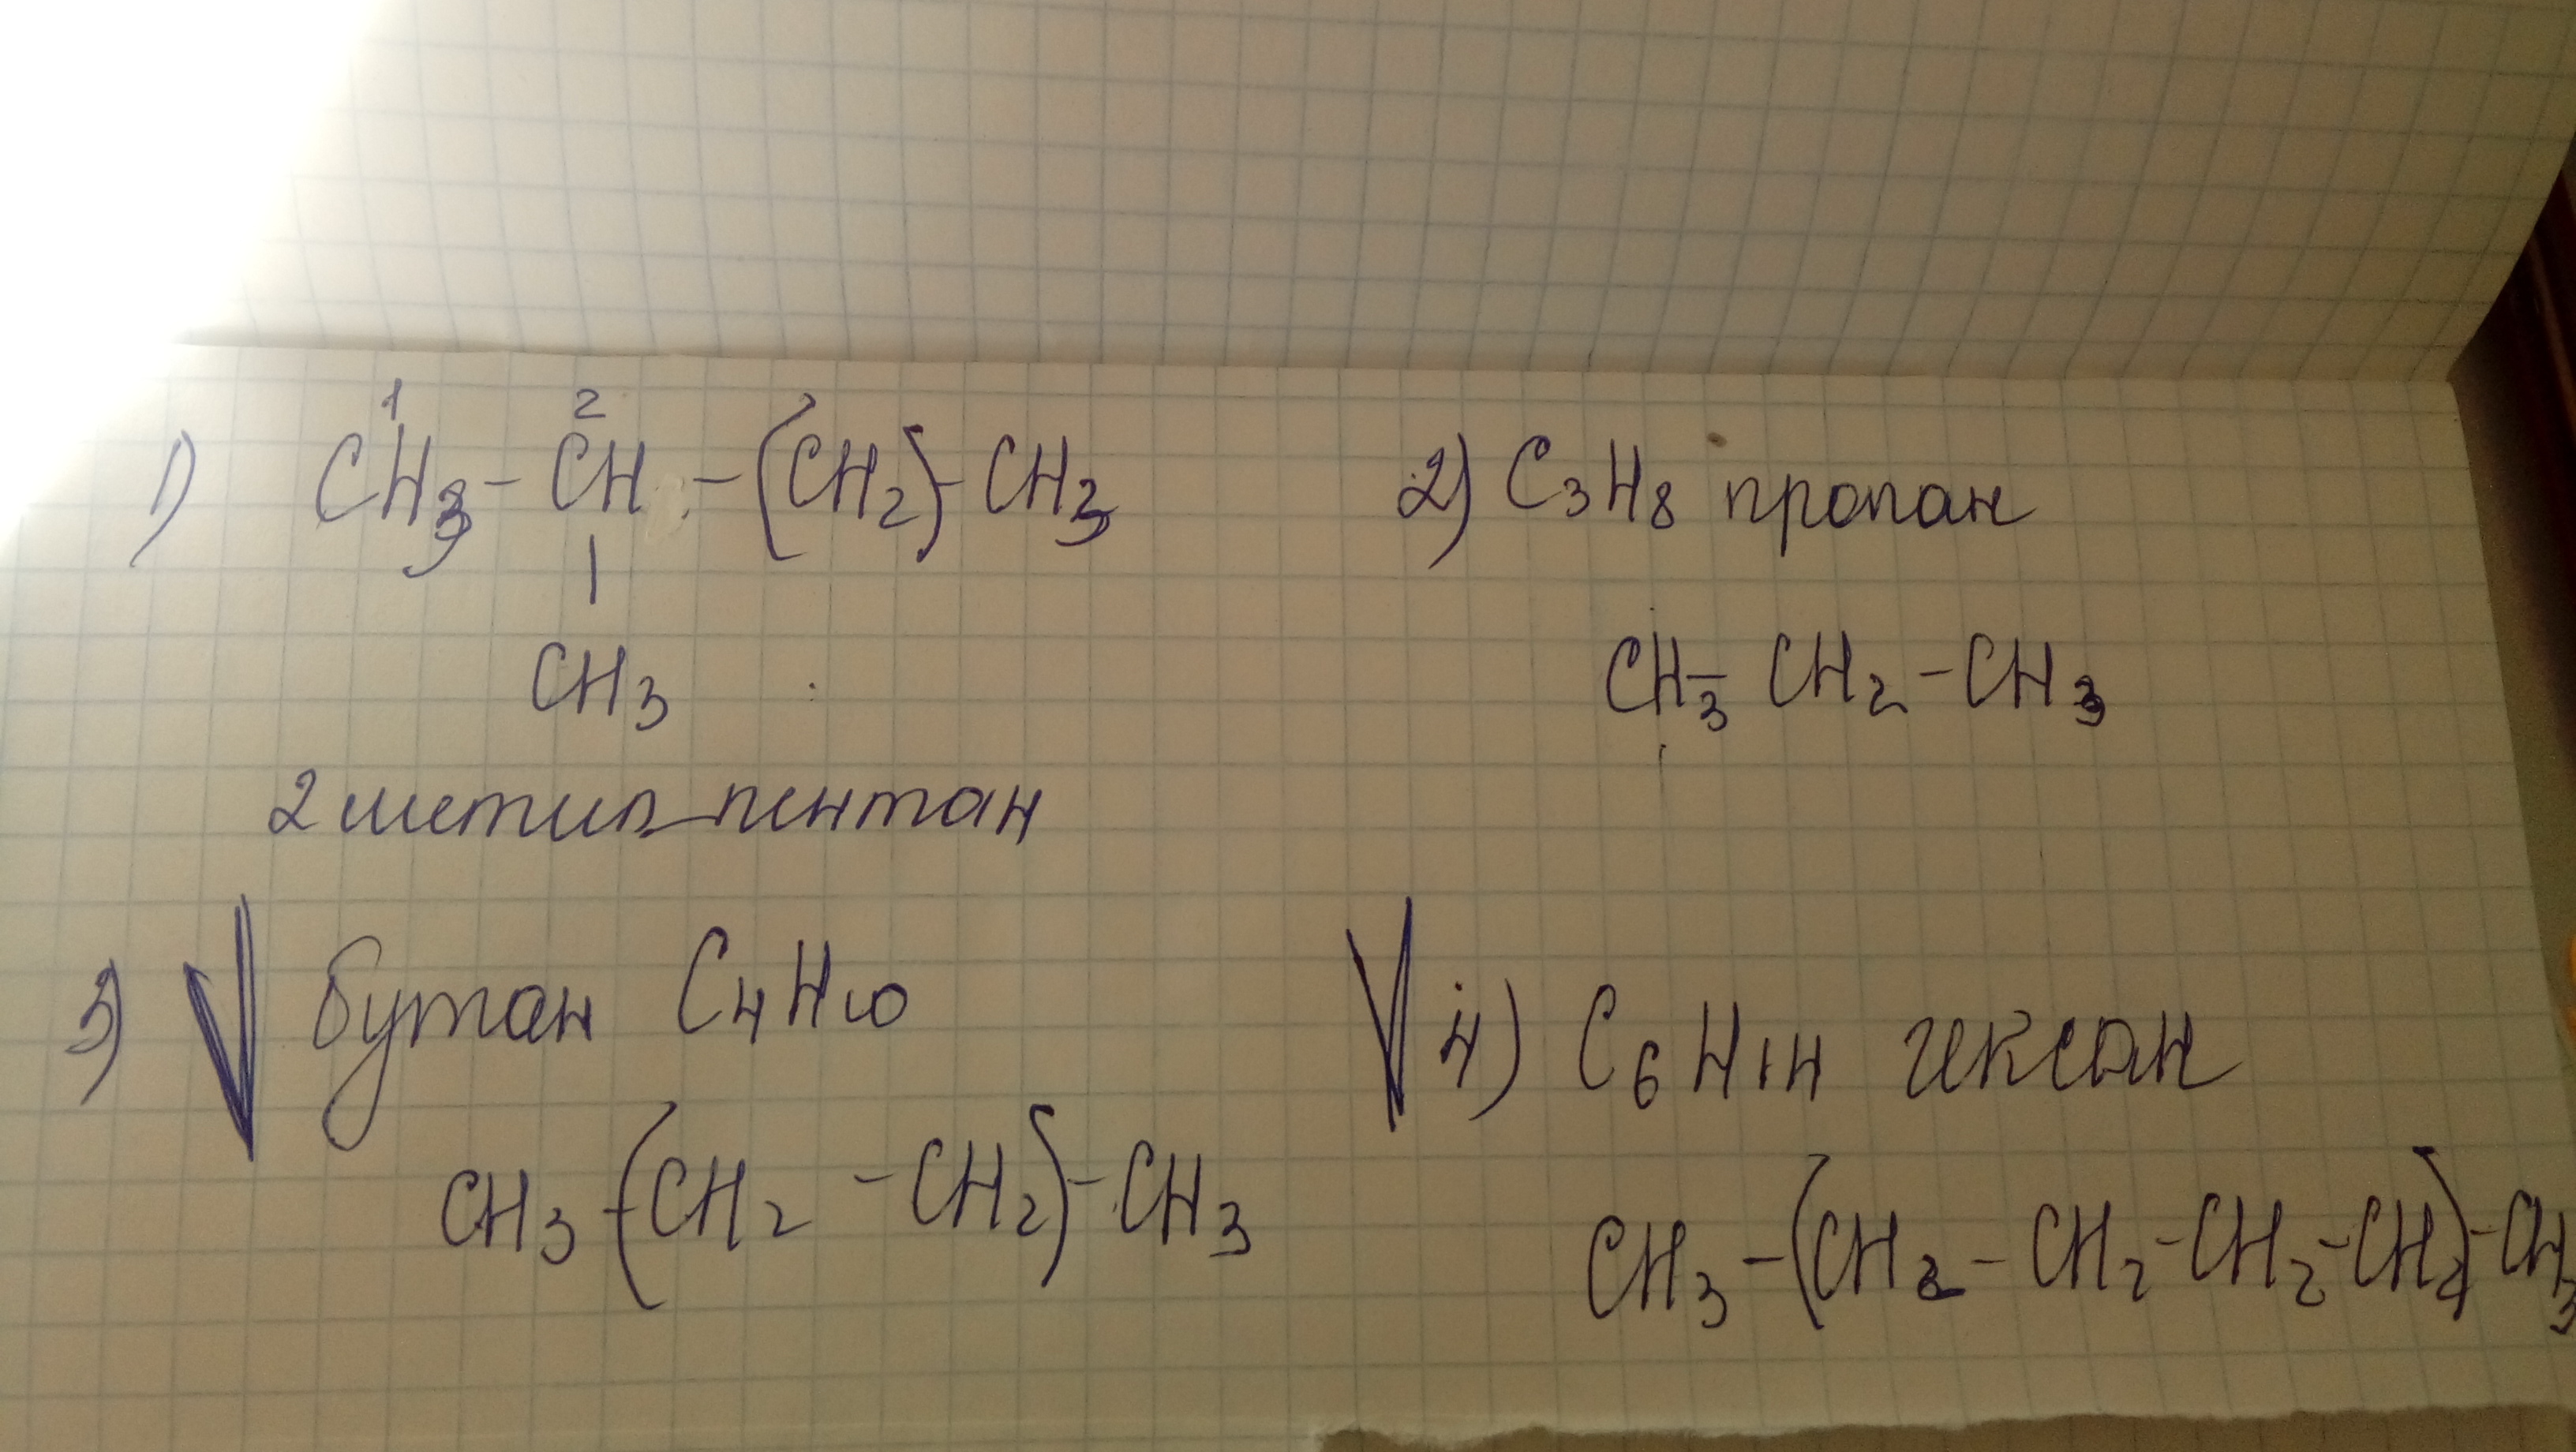 1 2
1) CH3 - CH - (CH2) - CH3
|
CH3
2 метил пентан
2) C3H8 пропан
CH3 - CH2 - CH3
3) V бутан C4H10
CH3 - (CH2 - CH2) - CH3
V 4) C6H14 гексан
CH3 - (CH2 - CH2 - CH2 - CH2) - CH3